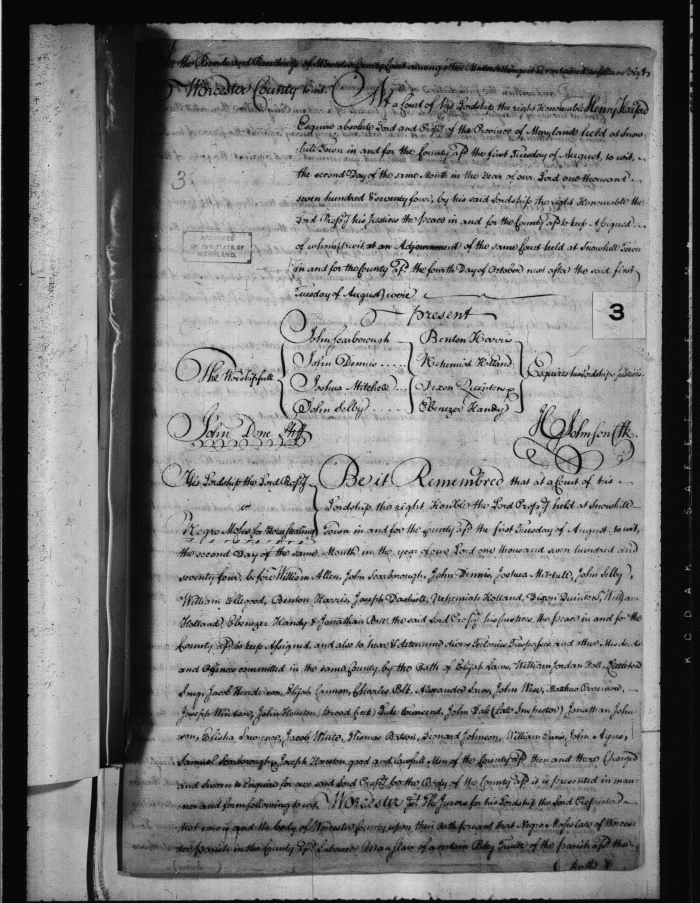 the Records and Proceedings of Worcester County Court amongst other Matters & things it is contained as follows Viz.t
Worcester County to wit. At a Court of his Lordship the right Honourable Henry Harford
Esquire absolute Lord and Prop.ry of the Province of Maryland held at Snow-
hill Town in and for the County afs.d the first Tuesday of August, to wit,
the second Day of the same Month in the Year of our Lord one thousand
seven hundred & seventy four, by his said Lordship the right Honourable the
Lord Prop.ry his Justices the peace in and for the County afs.d to keep Assigned
of whom (to wit at an Adjournment of the same Court held at Snowhill Town
in and for the County afs.d the fourth Day of October next after the said first
Tuesday of August) were
3
ARCHIVES
OF THE STATE OF
MARYLAND.
3
Present
The Worshipfull
John Scarborough
John Dennis
Joshua Mitchell
John Selby
Benton Harris
Nehemiah Holland
Dixon Quinton
Ebenezer Handy
Esquires his Lordships Justices
John Done Shff
H Johnson Clk.
His Lordship the Lord Prop.ry
vs
Negro Moses for Horsestealing
Be it Remembred that at a Court of his
Lordship the right Honble the Lord Prop.ry held at Snowhill
Town in and for the County afs.d the first Tuesday of August, to wit,
the second Day of the same Month in the year of our Lord one thousand seven hundred and
seventy four, before William Allen, John Scarborough, John Dennis, Joshua Mitchell, John Selby,
William Ellegood, Benton Harris, Joseph Dashiell, Nehemiah Holland, Dixon Quinton, William
Holland, Ebenezer Handy & Jonathan the said Lord Prop.ry his Justices the peace in and for the
County afs.d to keep Assigned, and also to hear & determine divers Felonies Trespasses and other Misdeeds
and Offences committed in the same County by the Oath of Elijah Laws, William Jordan Hall,
Long, Jacob Henderson, Elijah Cannon, Charles Bolt, Alexander Laws, John Wise, Matthew
Joseph Windsor, John Houston (broad Creek) Luke Townsend, John (late Inspector) Jonathan John-
son, Elisha Lawrence, Jacob White, Thomas Batson, Leonard Johnson, William Ennis, John Agnes,
Samuel Scarborough, Joseph Houston good and lawfull Men of the County afs.d then and there Charged
and Sworn to Enquire for our said Lord Prop.ry for the Body of the County afs.d it is presented in man-
ner and form following to wit, Worcester Ss. The Jurors for his Lordship the Lord Proprietor
that now is and the body of Worcester County upon their Oath present that Negro Moses late of Worces-
ter parish in the County afs.d Labourer Man slave of a certain of the parish afs.d the